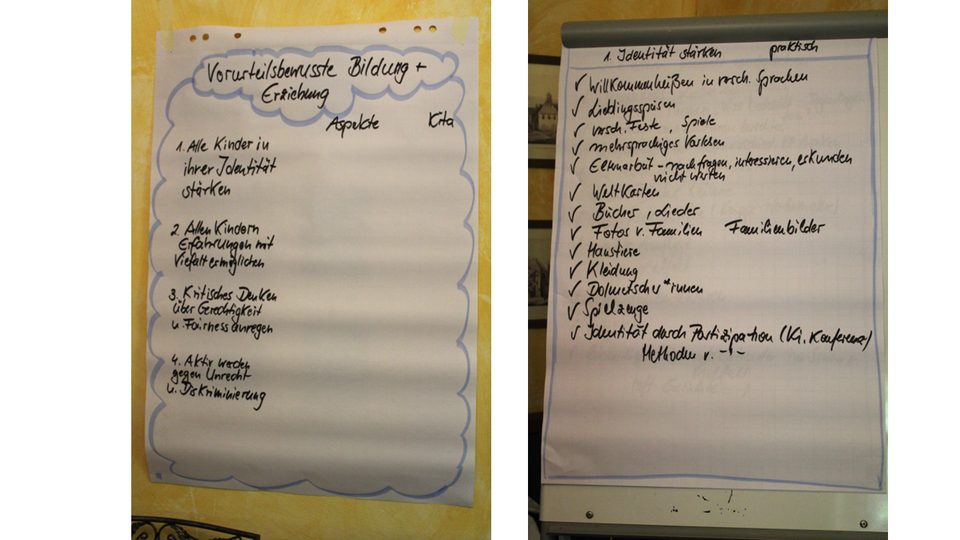 Vorurteilsbewusste Bildung +
Erziehung
Aspekte Kita
1. Alle Kinder in
ihrer Identität
stärken
2. Allen Kindern
Erfahrungen mit
Vielfalt ermöglichen
3. Kritisches Denken
über Gerechtigkeit
u. Fairness anregen
4. Aktiv werden
gegen Unrecht
u. Diskriminierung
1. Identität stärken praktisch
✓ Willkommenheißen in versch. Sprachen
✓ Lieblingsspeisen
✓ versch. Feste, Spiele
✓ mehrsprachiges Vorlesen
✓ Elternarbeit - nachfragen, interessieren, erkunden
nicht werten
✓ Weltkarten
✓ Bücher, Lieder
✓ Fotos v. Familien Familienbilder
✓ Haustiere
✓ Kleidung
✓ Dolmetscher*innen
✓ Spielzeuge
✓ Identität durch Partizipation (Ki. Konferenz)
Methoden v. -"-